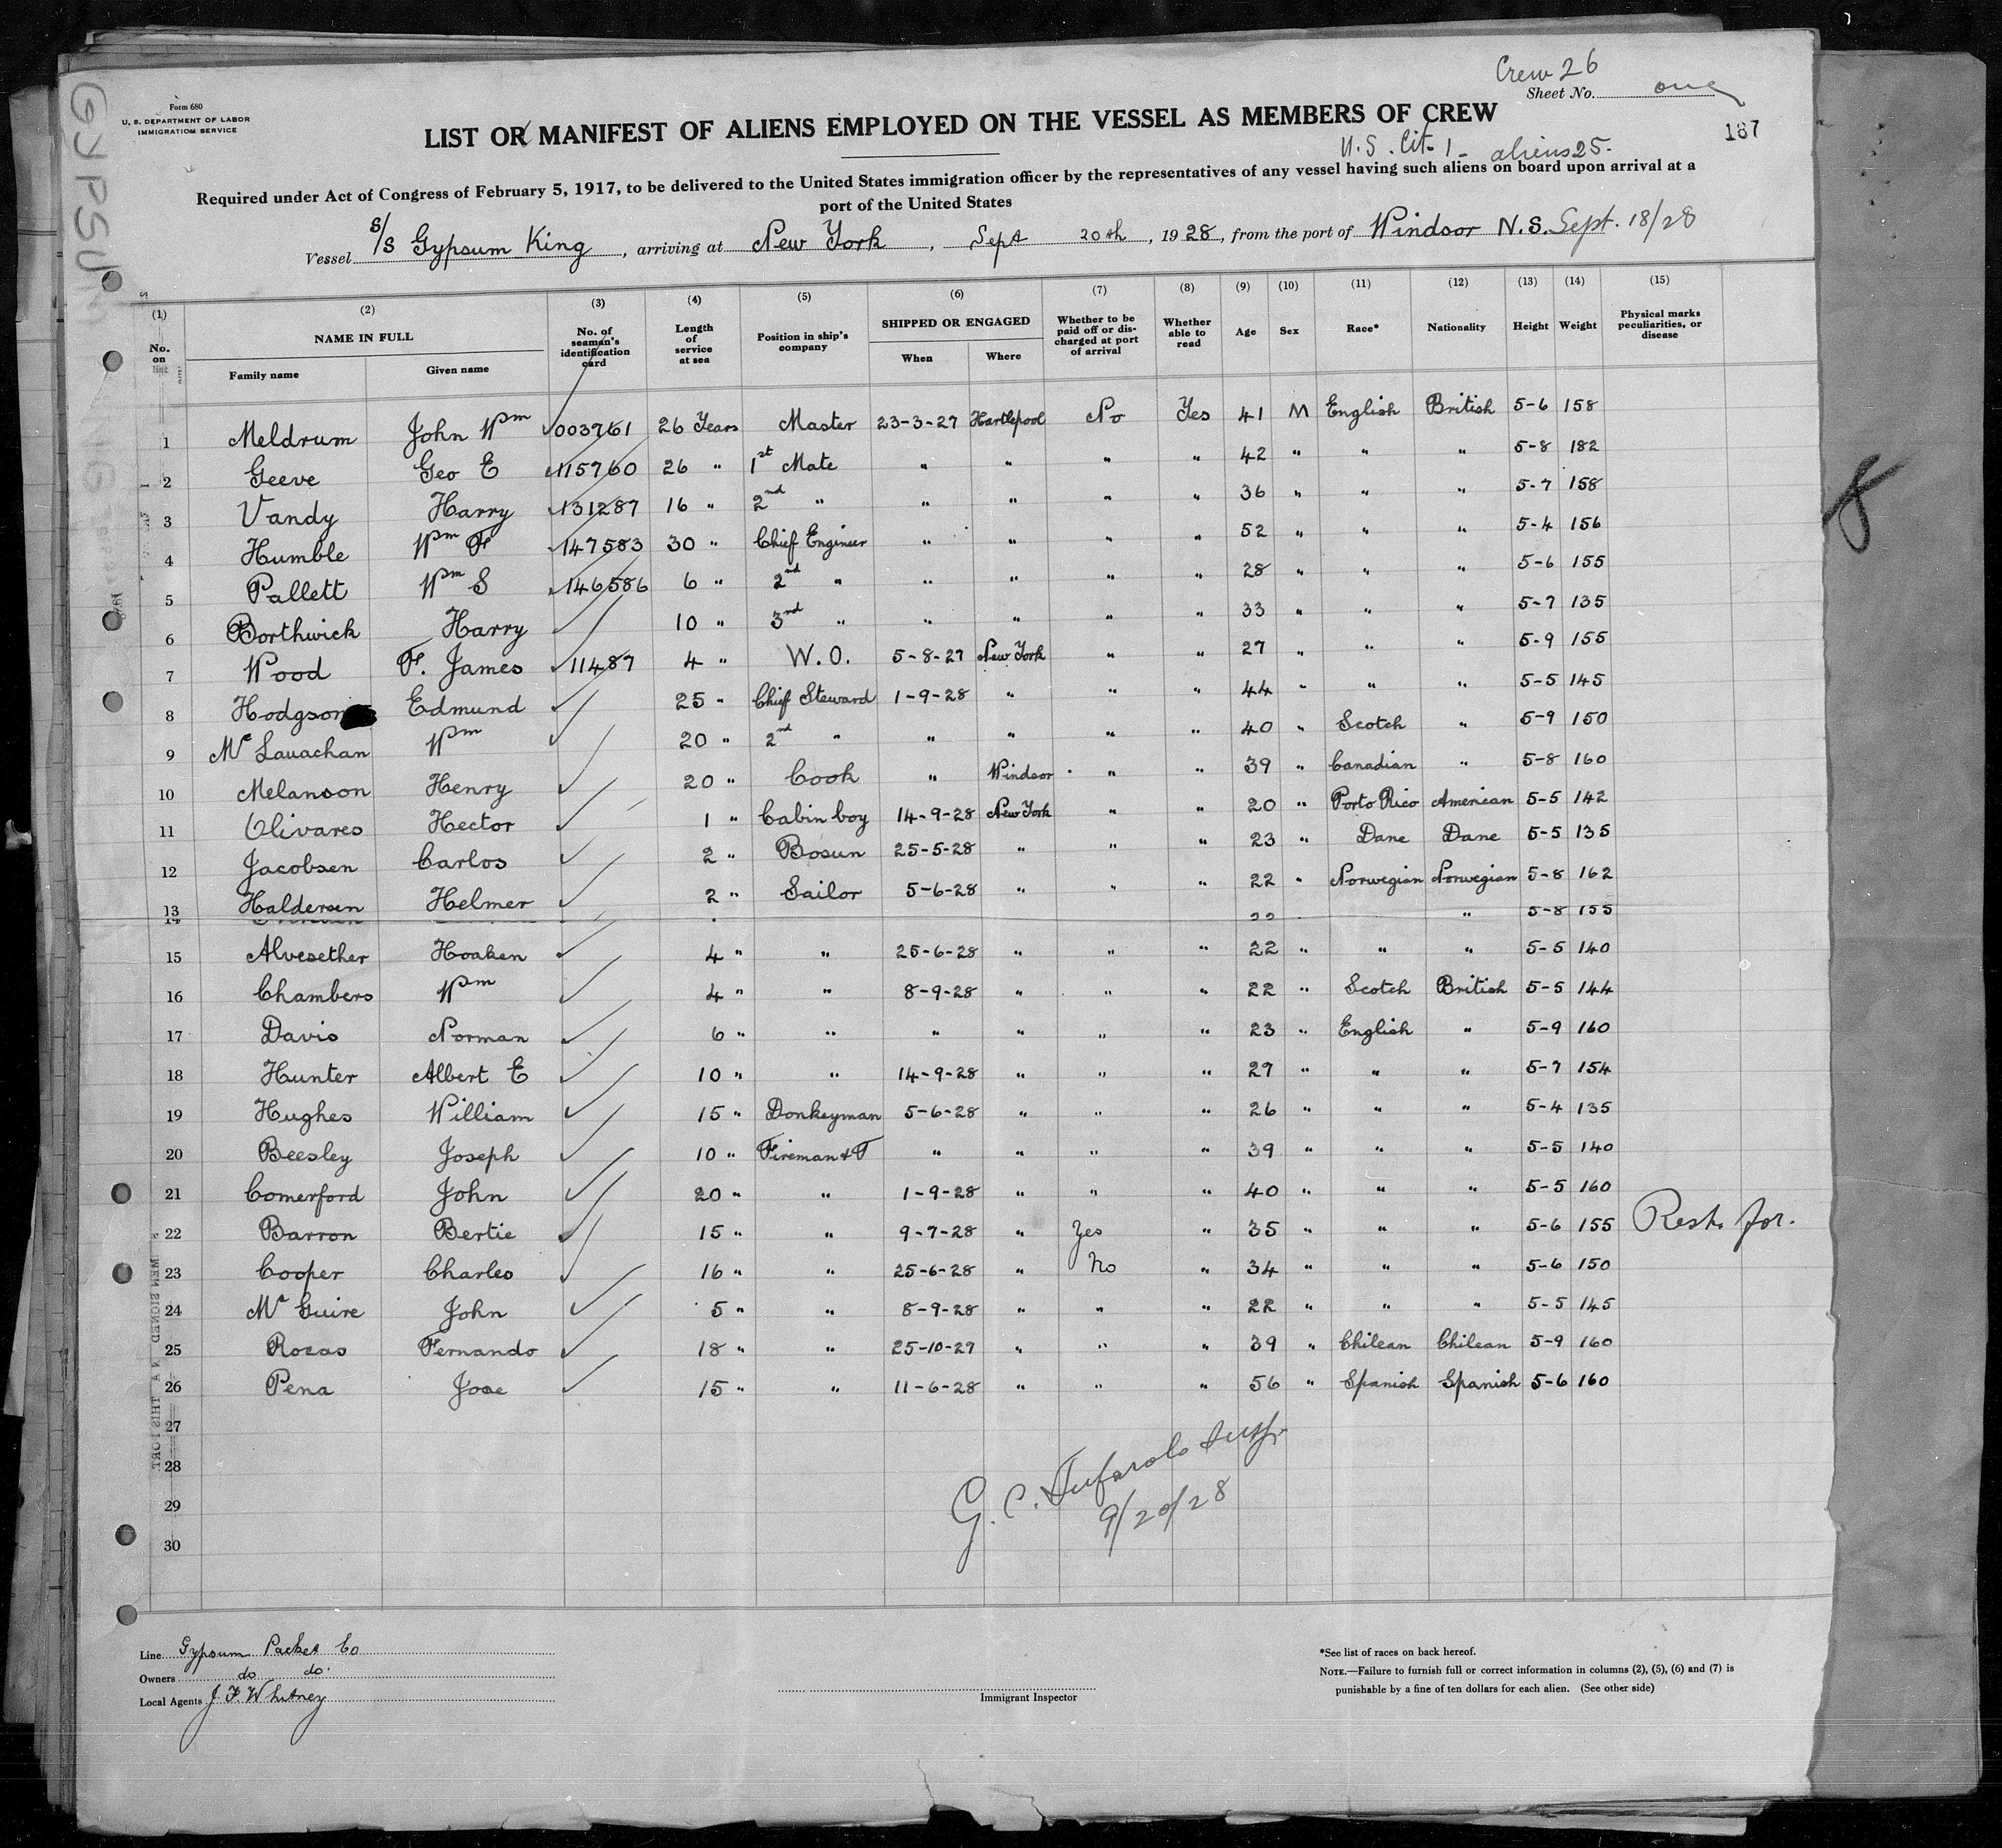 Crew 26
Form 680
U. S. DEPARTMENT OF LABOR
IMMIGRATION SERVICE
Sheet No. one
LIST OR MANIFEST OF ALIENS EMPLOYED ON THE VESSEL AS MEMBERS OF CREW
187
U.S. Cit- 1 - aliens 25.
Required under Act of Congress of February 5, 1917, to be delivered to the United States immigration officer by the representatives of any vessel having such aliens on board upon arrival at a
port of the United States
Vessel S/S Gypsum King, arriving at New York, Sept 20th, 1928, from the port of Windsor N.S. Sept. 18/28
(1) (2) (3) (4) (5) (6) (7) (8) (9) (10) (11) (12) (13) (14) (15)
No. on list NAME IN FULL Family name Given name No. of seaman's identification card Length of service at sea Position in ship's company SHIPPED OR ENGAGED When Where Whether to be paid off or discharged at port of arrival Whether able to read Age Sex Race* Nationality Height Weight Physical marks peculiarities, or disease
1 Meldrum John Wm 003761 26 Years Master 23-3-27 Hartlepool No Yes 41 M English British 5-6 158
2 Geeve Geo E 115760 26 " 1st Mate " " " " 42 " " " 5-8 182
3 Vandy Harry 131287 16 " 2nd " " " " " 36 " " " 5-7 158
4 Humble Wm F 147583 30 " Chief Engineer " " " " 52 " " " 5-4 156
5 Pallett Wm S 146586 6 " 2nd " " " " " 28 " " " 5-6 155
6 Borthwick Harry 10 " 3rd " " " " " 33 " " " 5-7 135
7 Wood F. James 11487 4 " W.O. 5-8-27 New York " " 27 " " " 5-9 155
8 Hodgson Edmund 25 " Chief Steward 1-9-28 " " " 44 " " " 5-5 145
9 Mc Lauachan Wm 20 " 2nd " " " " " 40 " Scotch " 5-9 150
10 Melanson Henry 20 " Cook " Windsor " " 39 " Canadian " 5-8 160
11 Olivares Hector 1 " Cabin boy 14-9-28 New York " " 20 " Porto Rico American 5-5 142
12 Jacobsen Carlos 2 " Bosun 25-5-28 " " " 23 " Dane Dane 5-5 135
13 Haldersen Helmer 2 " Sailor 5-6-28 " " " 22 " Norwegian Norwegian 5-8 162
14 22 " 5-8 155
15 Alvesether Hoaken 4 " " 25-6-28 " " " 22 " " " 5-5 140
16 Chambers Wm 4 " " 8-9-28 " " " 22 " Scotch British 5-5 144
17 Davis Norman 6 " " " " " " 23 " English " 5-9 160
18 Hunter Albert E 10 " " 14-9-28 " " " 29 " " " 5-7 154
19 Hughes William 15 " Donkeyman 5-6-28 " " " 26 " " " 5-4 135
20 Beesley Joseph 10 " Fireman & T " " " " 39 " " " 5-5 140
21 Comerford John 20 " " 1-9-28 " " " 40 " " " 5-5 160
22 Barron Bertie 15 " " 9-7-28 " Yes " 35 " " " 5-6 155 Rest. for.
23 Cooper Charles 16 " " 25-6-28 " No " 34 " " " 5-6 150
24 Mc Guire John 5 " " 8-9-28 " " " 22 " " " 5-5 145
25 Rocas Fernando 18 " " 25-10-27 " " " 39 " Chilean Chilean 5-9 160
26 Pena Jose 15 " " 11-6-28 " " " 56 " Spanish Spanish 5-6 160
27
28
29
30
G. C.
9/20/28
8
Line Gypsum Packet Co
Owners do do.
Local Agents J F Whitney
Immigrant Inspector
*See list of races on back hereof.
NOTE.—Failure to furnish full or correct information in columns (2), (5), (6) and (7) is
punishable by a fine of ten dollars for each alien. (See other side)